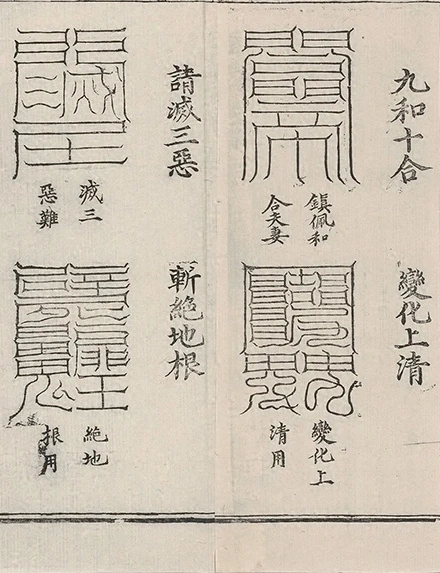 九和十合
鎮佩和
合夫妻
變化上清
變化上
清用
請滅三惡
滅三
惡難
斬絕地根
絕地
根用